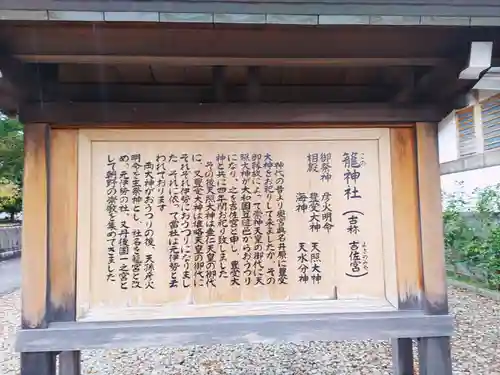 籠神社(古称 吉佐宮)
この
よさのみや
御祭神 彦火明命
相殿 豊受大神 天照大神
海神 天水分神
神代の昔より奥宮眞名井原に豊受
大神をお祀りして来ましたが、その
御縁故によって崇神天皇の御代に天
照大神が大和国笠縫邑からおうつり
になり、之を吉佐宮と申し、豊受大
神と共に四年間お祀り致しました。
その後天照大神は垂仁天皇の御代
に、又豊受大神は雄略天皇の御代に
それぞれ伊勢へおうつりになりまし
た。それに依って當社は元伊勢と云
われております
両大神がおうつりの後、天孫彦火
明命を主祭神とし、社名を籠宮と改
め、元伊勢の社、又丹後国一之宮と
して朝野の崇敬を集めてきました